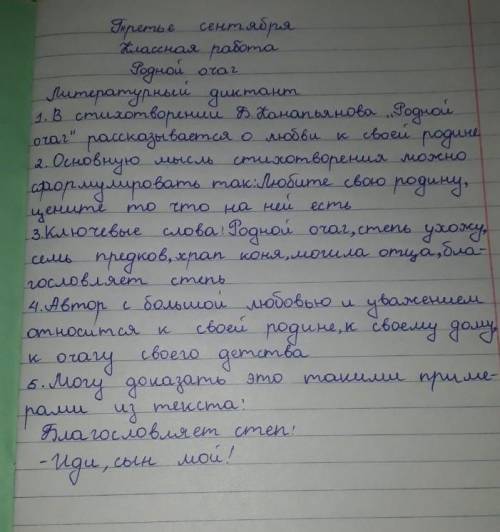 Третье сентября
Классная работа
Родной очаг
Литературный диктант
1. В стихотворении Б.Канапьянова „Родной
очаг" рассказывается о любви к своей родине
2. Основную мысль стихотворения можно
сформулировать так: Любите свою родину,
цените то что на ней есть
3. Ключевые слова: Родной очаг, степь ухожу,
семь предков, храп коня, могила отца, бла-
гословляет степь
4. Автор с большой любовью и уважением
относится к своей родине, к своему дому,
к очагу своего детства
5. Могу доказать это такими приме-
рами из текста:
Благословляет степ:
- Иди, сын мой!